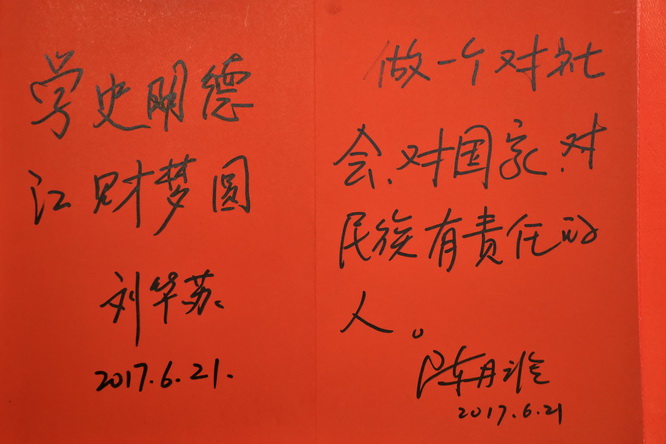 学史明德
江财梦圆
刘华苏
2017.6.21.
做一个对社
会、对国家、对
民族有责任的
人。
陈丹淮
2017.6.21